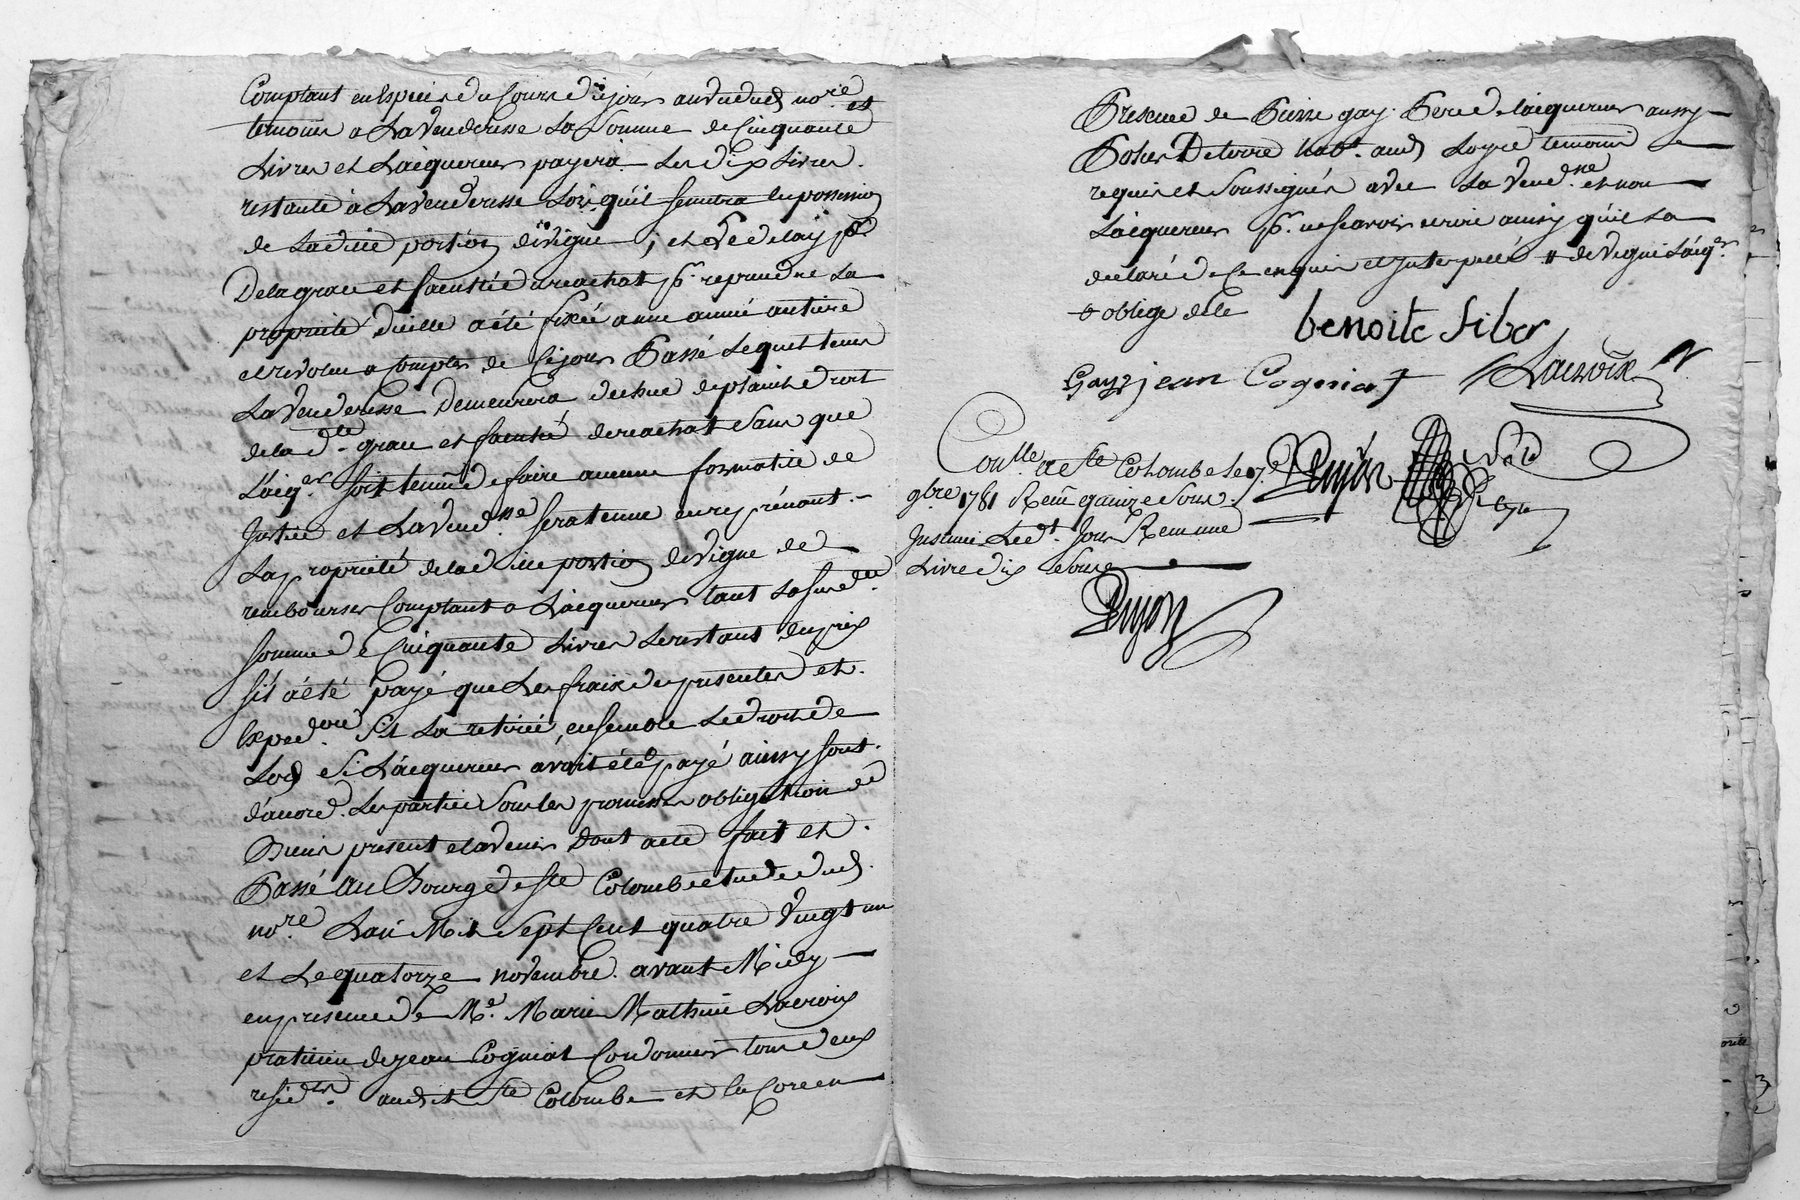 Comptant en Especes du Cours de ce jour au vu dud no.re et
temoins a La Venderesse La Somme de Cinquante
Livres et L'acquereur payera Les dix Livres
restante a La Venderesse Lors qu'il sentrera en possession
de Laditte portion de vigne, et Le delay p.r
De la grace et faculté de reachat p.r reprendre La
proprieté d'icelle a été fixée a une année antiere
et revolue a Compter de Ce jour Passé Lequel tems
La Venderesse Demeurera dechue de plain droit
de la d.te grace et faculté de reachat Sans que
L'acq.r soit tenu de faire aucune formalité de
Justice et La Vend.sse sera tenue en reprenant
La proprieté de lad itte portion de Vigne de
rembourser Comptant a L'acquereur tant La susd.tte
somme de Cinquante Livres Le restant du prix
s'il a été payé que Les fraix des presentes et
Exped.on Si La retiré, ensemble Le droit de
Lod Si L'acquereur avait été payé ainsy sont
d'acord Les parties Sous les promesses obligation de
Biens present et avenir Dont acte fait et
Passé au Bourg de Ste Colombe etude dud
no.re L'an Mil Sept Cent quatre Vingt un
et Le quatorze novembre avant Midy
en presence de M.e Marie Mathieu Lacroix
praticien de jean Cogniat Cordonnier tous deux
resid.ts aud it Ste Colombe et En Core en
Presence de Pierre gay Pere de L'acquereur aussy
Potier De terre hab.t aud Loyre temoins
requis et Soussignés avec La Vend.sse et non
L'acquereur p.r ne scavoir ecrire ainsy qu'il La
declaré de Ce enquis et Interpellé # de Vigne L'acq.r
+ oblige de le
benoite Siber
Gay jean Cogniat Lacroix
Con.lle a Ste Colombe Le 27.e
9bre 1781 Recu quinze Sous
Insinué Le d.t Jour Recu une
Livre dix Sous
Dujon
Dujon